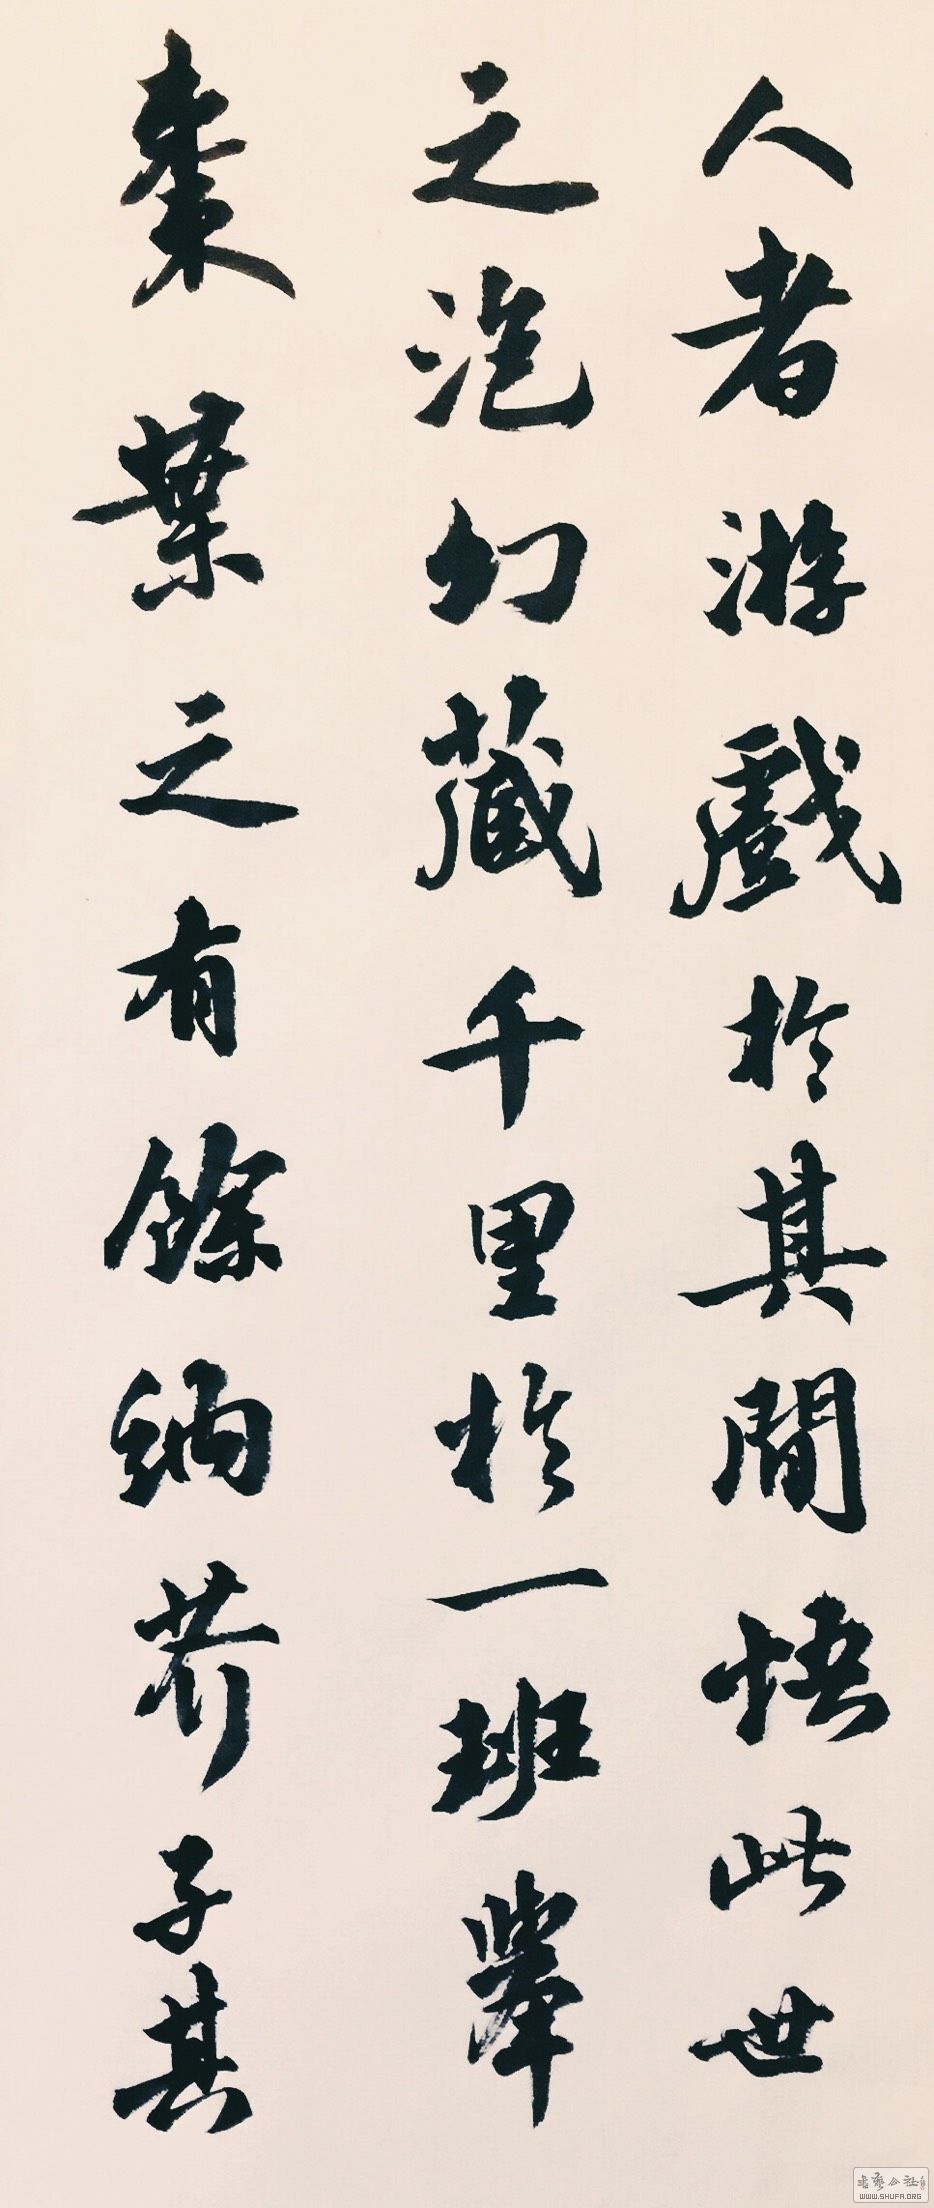 人者游戲於其間悟此世
之泡幻藏千里於一班舉
棗葉之有餘納芥子其
書藝公社
WWW.SHUFA.ORG